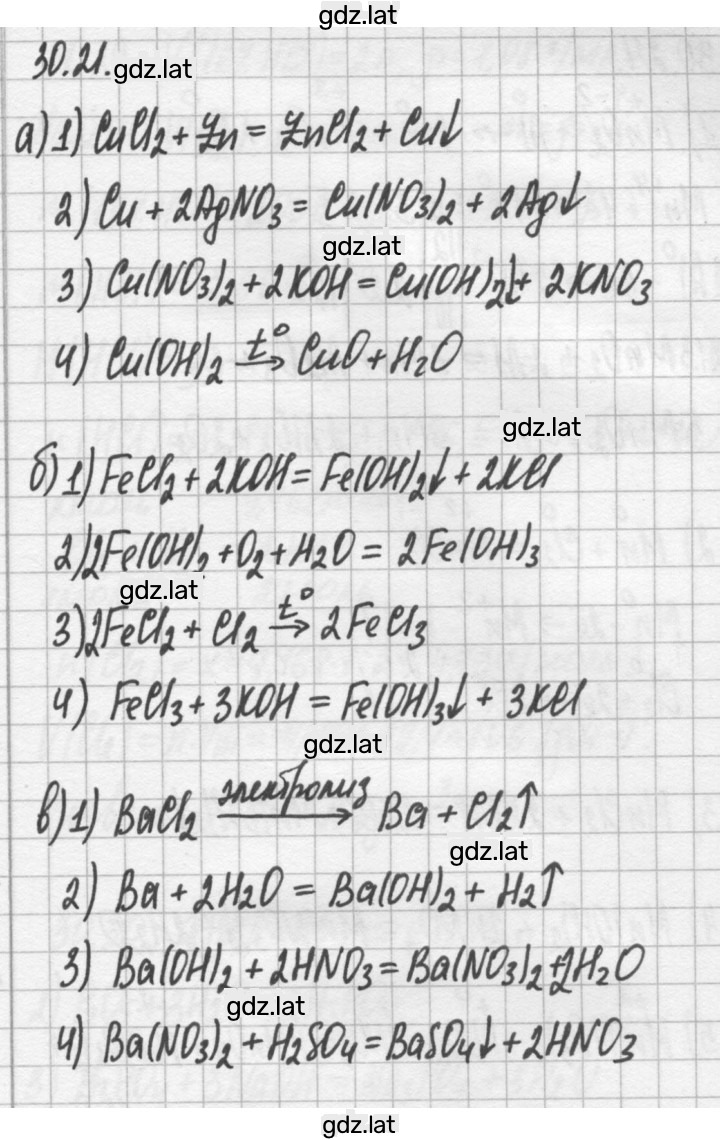 gdz.lat
30.21. gdz.lat
а) 1) CuCl₂ + Zn = ZnCl₂ + Cu↓
2) Cu + 2AgNO₃ = Cu(NO₃)₂ + 2Ag↓
gdz.lat
3) Cu(NO₃)₂ + 2KOH = Cu(OH)₂↓ + 2KNO₃
4) Cu(OH)₂ —t°→ CuO + H₂O
gdz.lat
б) 1) FeCl₂ + 2KOH = Fe(OH)₂↓ + 2KCl
2) 2Fe(OH)₂ + O₂ + H₂O = 2Fe(OH)₃
gdz.lat
3) 2FeCl₂ + Cl₂ —t°→ 2FeCl₃
4) FeCl₃ + 3KOH = Fe(OH)₃↓ + 3KCl
gdz.lat
в) 1) BaCl₂ —электролиз→ Ba + Cl₂↑
gdz.lat
2) Ba + 2H₂O = Ba(OH)₂ + H₂↑
3) Ba(OH)₂ + 2HNO₃ = Ba(NO₃)₂ + 2H₂O
gdz.lat
4) Ba(NO₃)₂ + H₂SO₄ = BaSO₄↓ + 2HNO₃
gdz.lat